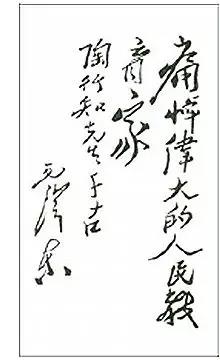 痛悼伟大的人民教
育家
陶行知先生千古
毛泽东